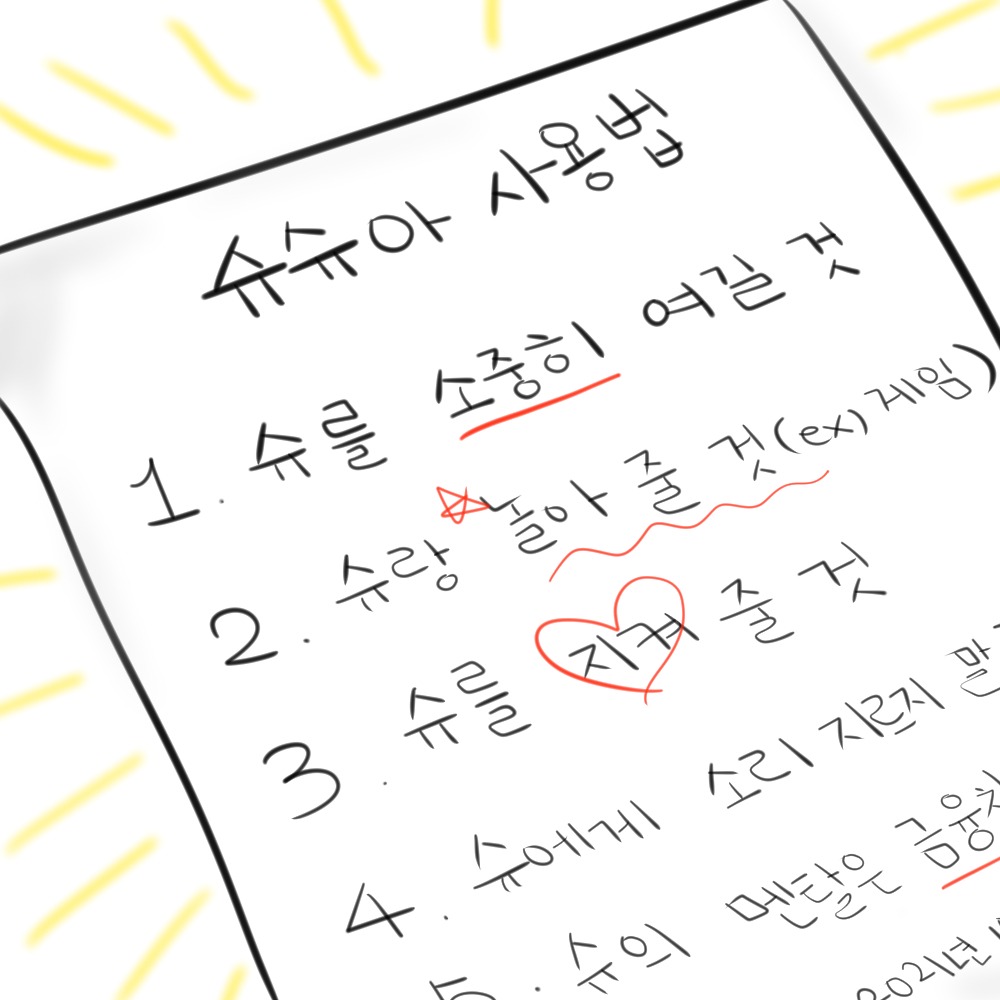 슈슈아 사용법
1. 슈를 소중히 여길 것
2. 슈랑 놀아 줄 것(ex) 게임)
3. 슈를 지켜 줄 것
4. 슈에게 소리 지르지 말
5. 슈의 멘탈은 금융치
2021년